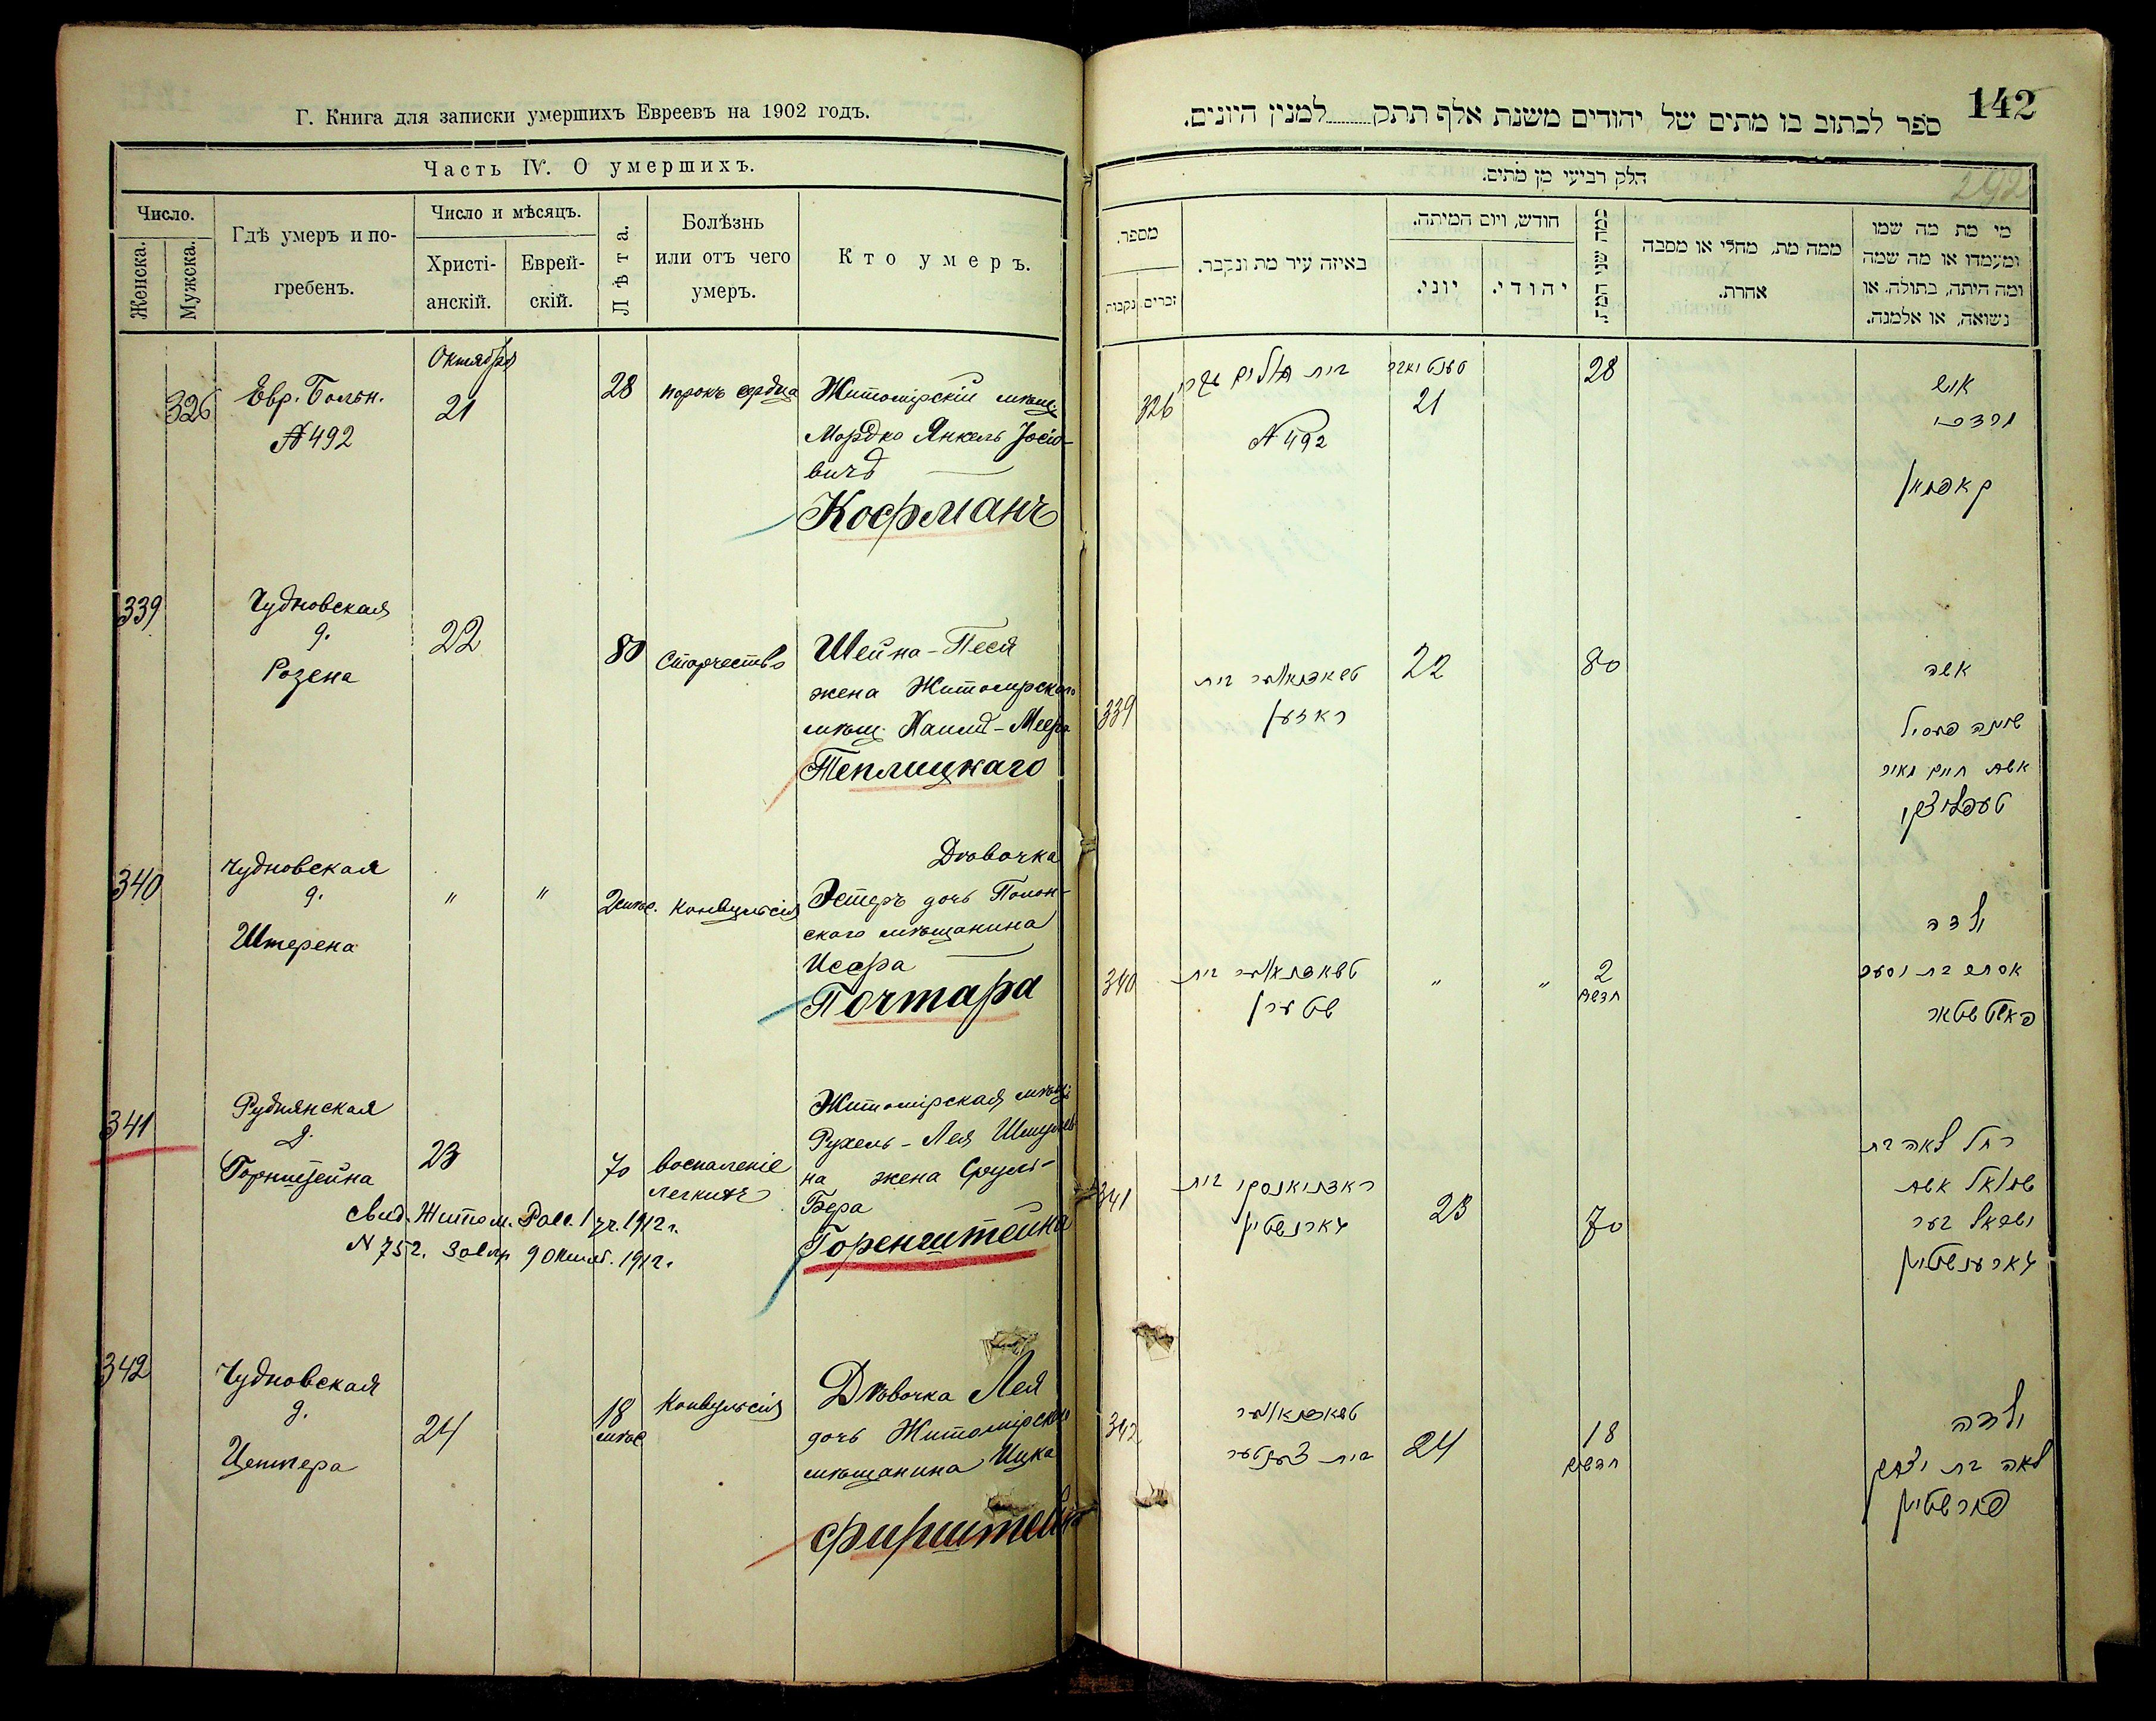 Г. Книга для записки умершихъ Евреевъ на 1902 годъ.
Часть IV. О умершихъ.
Число.
Женска.
Мужска.
Гдѣ умеръ и по-
гребенъ.
Число и мѣсяцъ.
Христі-
анскій.
Еврей-
скій.
Лѣта.
Болѣзнь
или отъ чего
умеръ.
Кто умеръ.
326
Евр. Больн.
№ 492
Октября
21
28
порокъ сердца
Житомірскій мѣщ.
Мордко Янкель Іосіо-
вичъ
Кофманъ
339
Чудновская
д.
Розена
22
80
Старчество
Шейна-Песя
жена Житомірскаго
мѣщ. Хаимъ-Меера
Теплицкаго
340
Чудновская
д.
Штерена
"
"
2 мѣс.
Конвульсія
Дѣвочка
Эстеръ дочь Полон-
скаго мѣщанина
Иссра
Почтара
341
Руднянская
д.
Горнштейна
23
70
воспаленіе
легкихъ
Житомірская мѣщ.
Рухель-Лея Шмулев
на жена Срулі-
Бера
Горенштейна
свид. Житом. Равв. 1 уч. 1912 г.
N 752. 9 Октяб. 1912 г.
342
Чудновская
д.
Центера
24
18
мѣс
Конвульсія
Дѣвочка Лея
дочь Житомірскаго
мѣщанина Ицка
Фирштейна
142
292
ספר לכתוב בו מתים של יהודים משנת אלף תתק למנין היונים.
חלק רביעי מן מתים.
מי מת מה שמו
ומעמדו או מה שמה
ומה היתה, בתולה, או
נשואה, או אלמנה.
ממה מת, מחלי או מסבה
אחרת.
כמה שני המת.
חודש, ויום המיתה.
יהודי.
יוני.
באיזה עיר מת ונקבר.
מספר.
זכרים
נקבות
איש
מרדכי
קאפמאן
28
21
בית חולים
N 492
326
אשה
שיינה פעסיל
אשת חיים מאיר
טעפליצקי
80
22
בית
ראזען
339
ילדה
אסתר בת
2
חדשים
"
"
בית
שטערן
340
רחל לאה בת
שמואל אשת
ישראל בער
גארענשטיין
70
23
בית
גארנשטיין
341
ילדה
לאה בת יצחק
פירשטיין
18
חדשים
24
בית צענטער
342